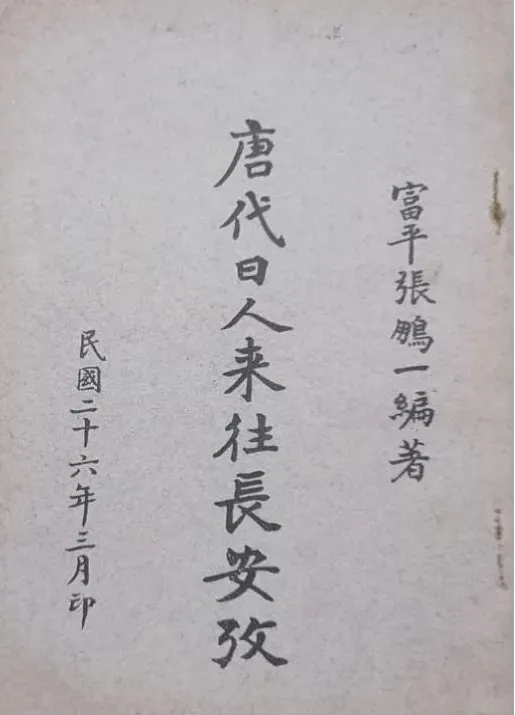 富平張鵬一編著
唐代日人来往長安攷
民國二十六年三月印